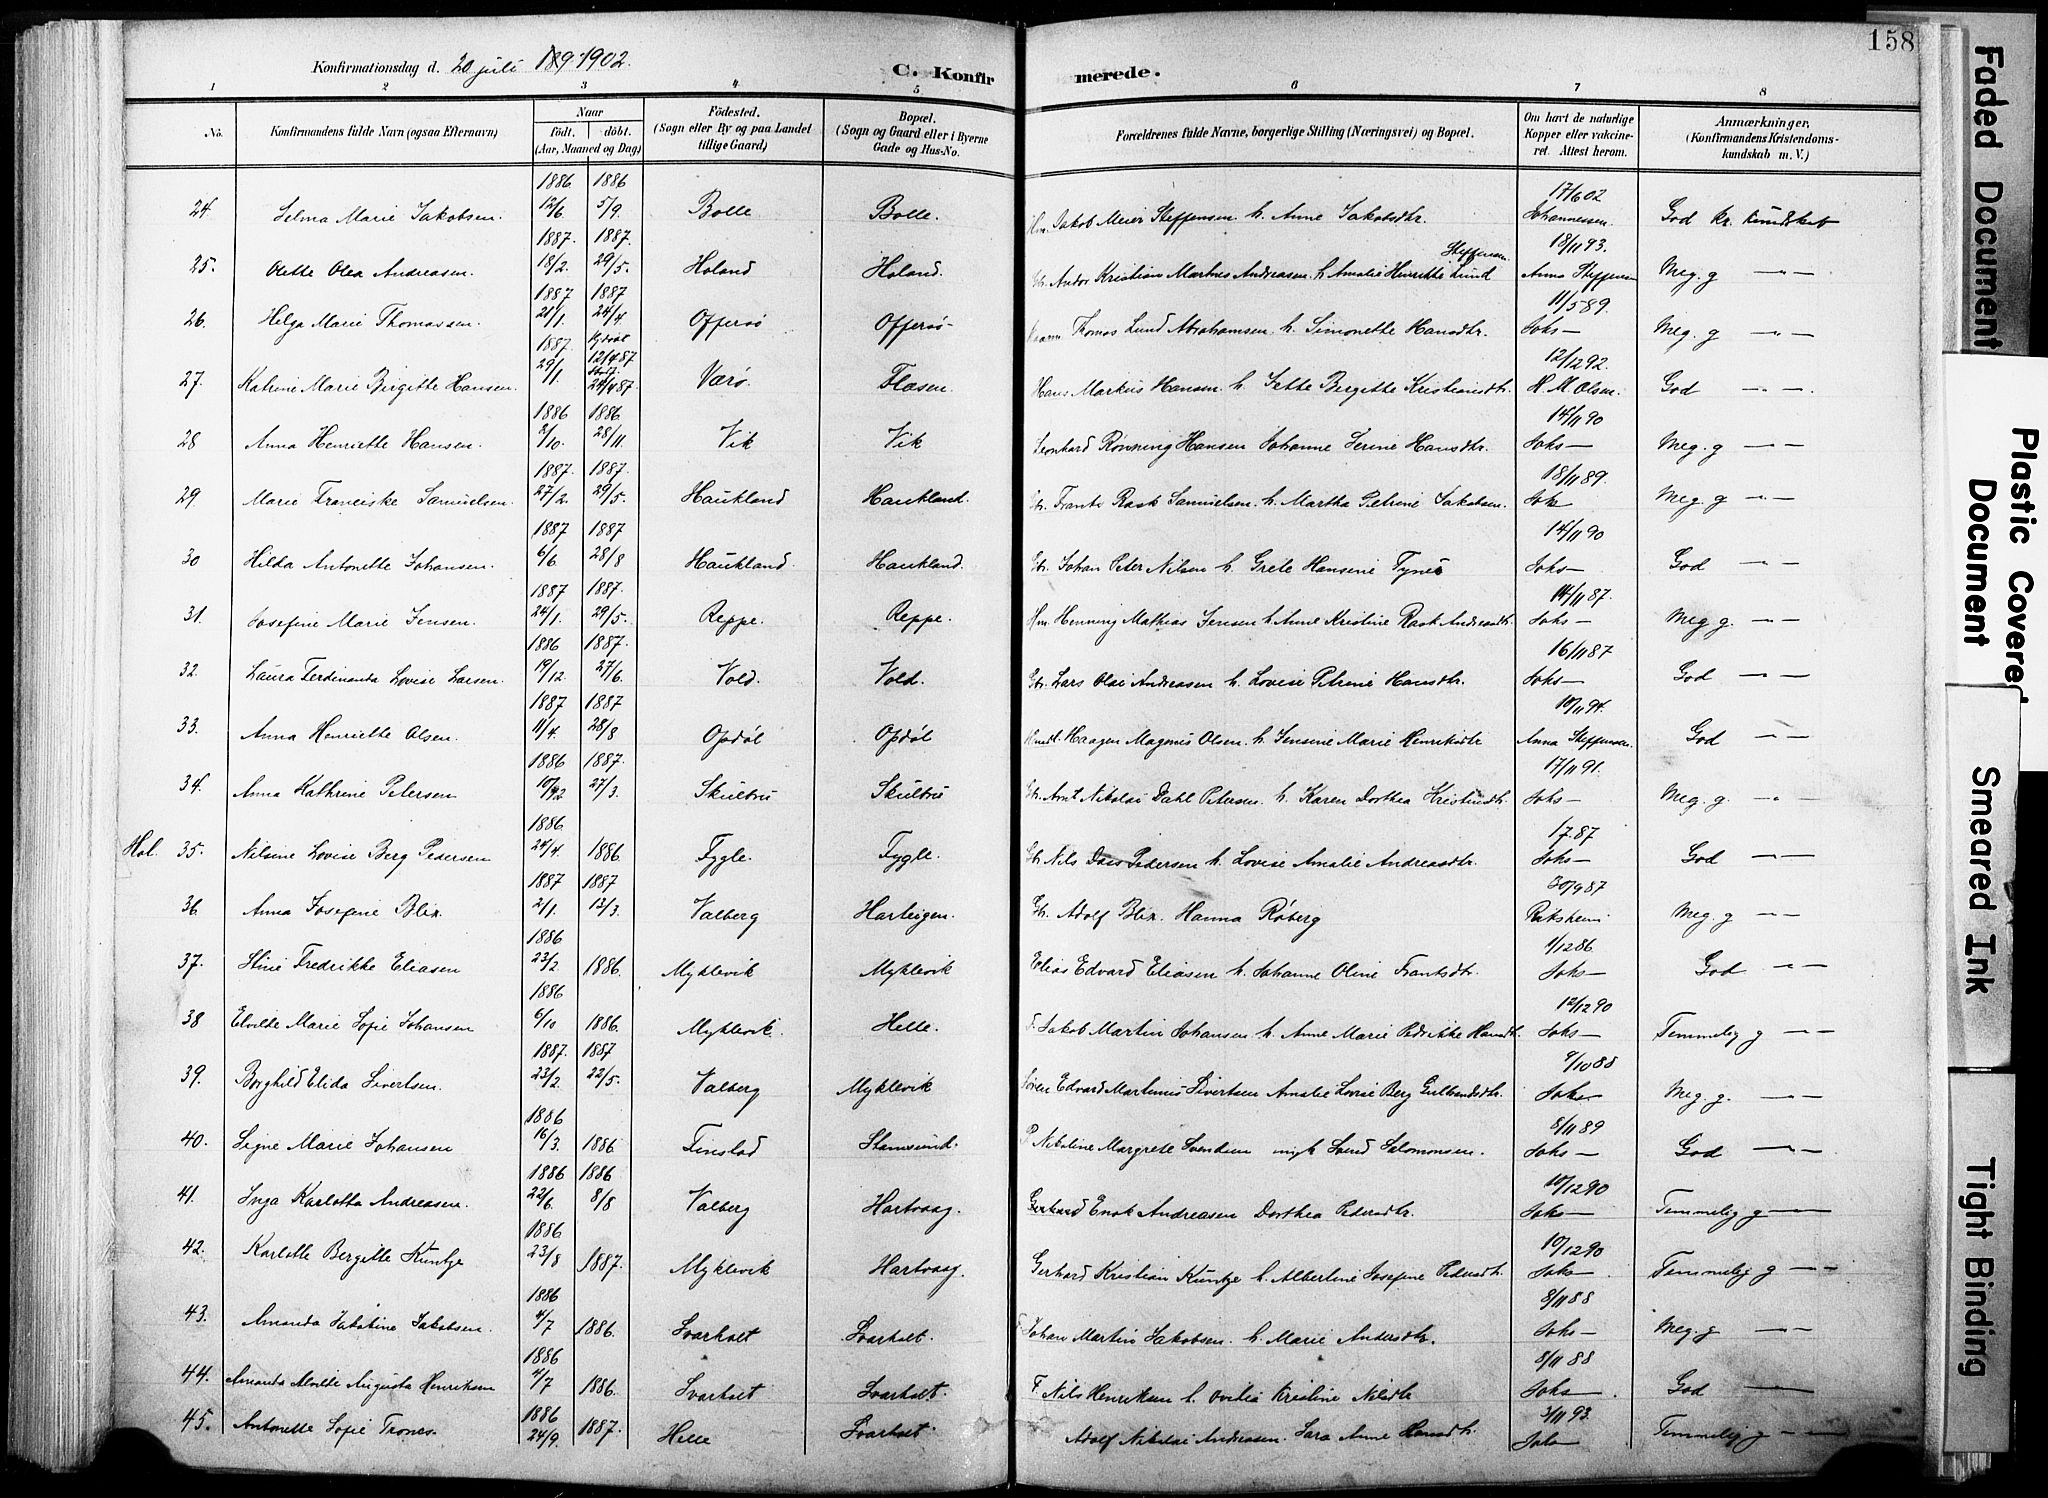 158
Konfirmationsdag d. 20 juli 189 1902.
C. Konfirmerede.
1 2 3 4 5 6 7 8
No.
Konfirmandens fulde Navn (ogsaa Efternavn)
Naar
födt. döbt.
(Aar, Maaned og Dag)
Födested.
(Sogn eller By og paa Landet
tillige Gaard)
Bopæl.
(Sogn og Gaard eller i Byerne
Gade og Hus-No.
Forældrenes fulde Navne, borgerlige Stilling (Næringsvei) og Bopæl.
Om havt de naturlige
Kopper eller vakcine-
ret. Attest herom.
Anmærkninger,
(Konfirmandens Kristendoms-
kundskab m. V.)
1886 1886 17/6 02
24. Selma Marie Jakobsen. 12/6. 5/9. Bolle Bolle. Hm. Jakob Meier Steffensen h. Anne Jakobsdtr. Johannessen. God kr. kundskab
1887. 1887. Steffensen 18/11 93.
25. Olette Olea Andreasen. 18/2. 29/5. Holand Holand. Andor Kristian Martus Andreasen h. Amalie Henrikke Lund Anna Steffensen Meg. g — —
1887 1887 11/5 89.
26. Helga Marie Thomassen. 21/1. 24/4 Offersö Offersö Thomas Lund Abrahamsen h. Simonette Hansdtr. Joks— Meg. g — —
1887. 12/4 87 12/12 92.
27. Katrine Marie Birgitte Hansen. 29/1. 24/4 87 Værö. Flæsen Hans Markus Hansen h. Jette Bergitte Kristiansdtr. H. M. Olsen. God — —
1886 1886 14/11 90
28 Anna Henriette Hansen. 2/10. 28/11 Vik Vik Leonhard Rönning Hansen Johanne Serine Hansdtr. Joks— Meg. g — —
1887. 1887. 18/11 89.
29. Marie Franciske Samuelsen. 27/2. 29/5. Haukland Haukland. Frants Rask Samuelsen h. Martha Petrine Jakobsen. Joks Meg. g — —
1887 1887 14/11 90
30 Hilda Antonette Johansen. 6/6. 28/8 Haukland. Haukland. Johan Peter Nilsen h. Grete Hansine Tynes Joks— God — —
1887 1887. 14/11 87.
31. Josefine Marie Jensen. 24/1. 29/5. Reppe. Reppe. Hm. Henning Mathias Jensen h. Anne Kristine Rask Andreasdtr. Joks— Meg g. — —
1886 1887. 16/11 87
32. Laura Ferdinanda Lovise Larsen. 19/12 27/6. Vold. Vold. Lars Olai Andreasen h. Lovise Petrine Hansdtr. Joks— God — —
1887 1887 10/11 94.
33. Anna Henriette Olsen. 11/4. 28/8 Opdöl Opdöl Haagen Magnus Olsen h. Jensine Marie Henriksdtr Anna Steffensen. God — —
1886 1887. 17/11 91.
34. Anna Kathrine Petersen 10/12 27/3. Skulbru Skulbru Arnt Nikolai Dahl Petersen. h. Karen Dorthea Kristiansdtr. Joks— Meg. g. — —
1886 17. 87
Hol. 35. Nilsine Lovise Berg Pedersen 24/4. 1886. Fygle. Fygle. Nils Dass Pedersen h. Lovise Amalie Andreasdtr. Joks— God — —
1887 1887 30/9 87
36. Anna Josefine Blix. 2/1. 13/3. Valberg Harteigen. Adolf Blix. Hanna Röberg Meg. g — —
1886 1/12 86.
37. Stine Fredrikke Eliasen 23/2 1886. Myklevik Myklevik Elias Edvard Eliasen h. Johanne Oline Frantsdtr. Joks— God — —
1886 12/12 90
38 Elvilde Marie Sofie Johansen 6/10 1886. Myklevik. Helle. F. Jakob Martin Johansen h. Anne Marie Pedrikke Hansdtr. Joks— Temmelig g — —
1887. 1887 9/10 88
39. Borghild Elida Sivertsen. 23/2. 22/5. Valberg Myklevik Sören Edvard Martinus Sivertsen Amalie Lovise Berg Gulbrandsdtr. Joks— Meg. g. — —
1886 8/11 89
40. Signe Marie Johansen 16/3. 1886 Finstad Stamsund. P. Nikoline Margrete Svendsen Svend Salomonsen. Joks— God — —
1886 1886 10/12 90
41. Inga Karlotta Andreasen. 22/6. 8/8 Valberg Hartvaag. Gerhard Enok Andreasen Dorthea Pedersdtr. Joks— Temmelig g — —
1886 10/12 90
42. Karlotte Bergitte Küntze 23/8 1887. Myklevik Hartvaag. Gerhard Kristian Küntze h. Albertine Josefine Pedersdtr. Joks— Temmelig g — —
1886 8/11 88
43. Amanda Jakobine Jakobsen. 4/7 1886. Svarholt Svarholt. F. Johan Martin Jakobsen. h. Marie Andersdtr. Joks— Meg. g — —
1886 8/11 88
44. Amanda Alvilde Augusta Henriksen 4/7 1886. Svarholt Svarholt. F. Nils Henriksen h. Ovidia Kristine Nilsdtr Joks— God —
1886 3/11 93.
45. Antonette Sofie Trones. 24/9. 1887. Helle Svarholt Adolf Nikolai Andreasen. Sara Anne Hansdtr. Joks Temmelig g — —
Faded Document
Plastic Covered Document
Smeared Ink
Tight Binding